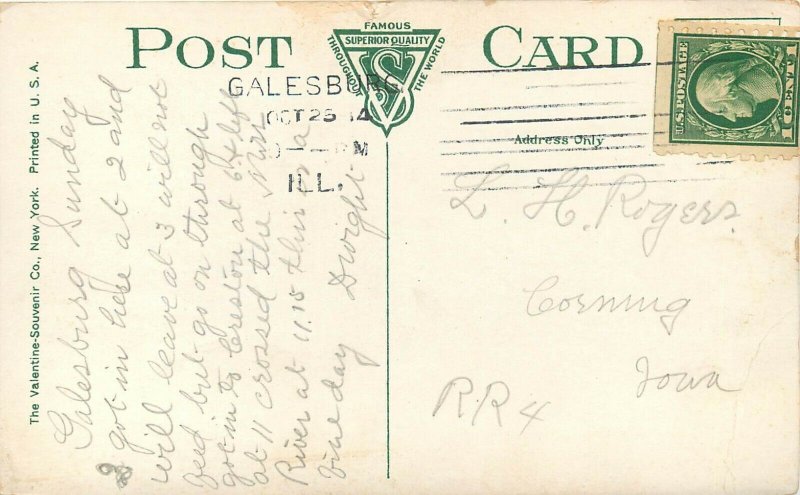 POST CARD
FAMOUS
SUPERIOR QUALITY
THROUGHOUT
THE WORLD
VS
GALESBURG
OCT 25 14
PM
ILL.
Address Only
U.S. POSTAGE
1 CENT 1
The Valentine-Souvenir Co., New York. Printed in U. S. A.
Galesburg Sunday
got in here at 2 and
will leave at 3 will not
feed but go on through
got in to Creston at 6 & left
at 11 crossed the Miss
River at 11.15 this
fine day Dwight
L. H. Rogers.
Corning
Iowa
RR 4